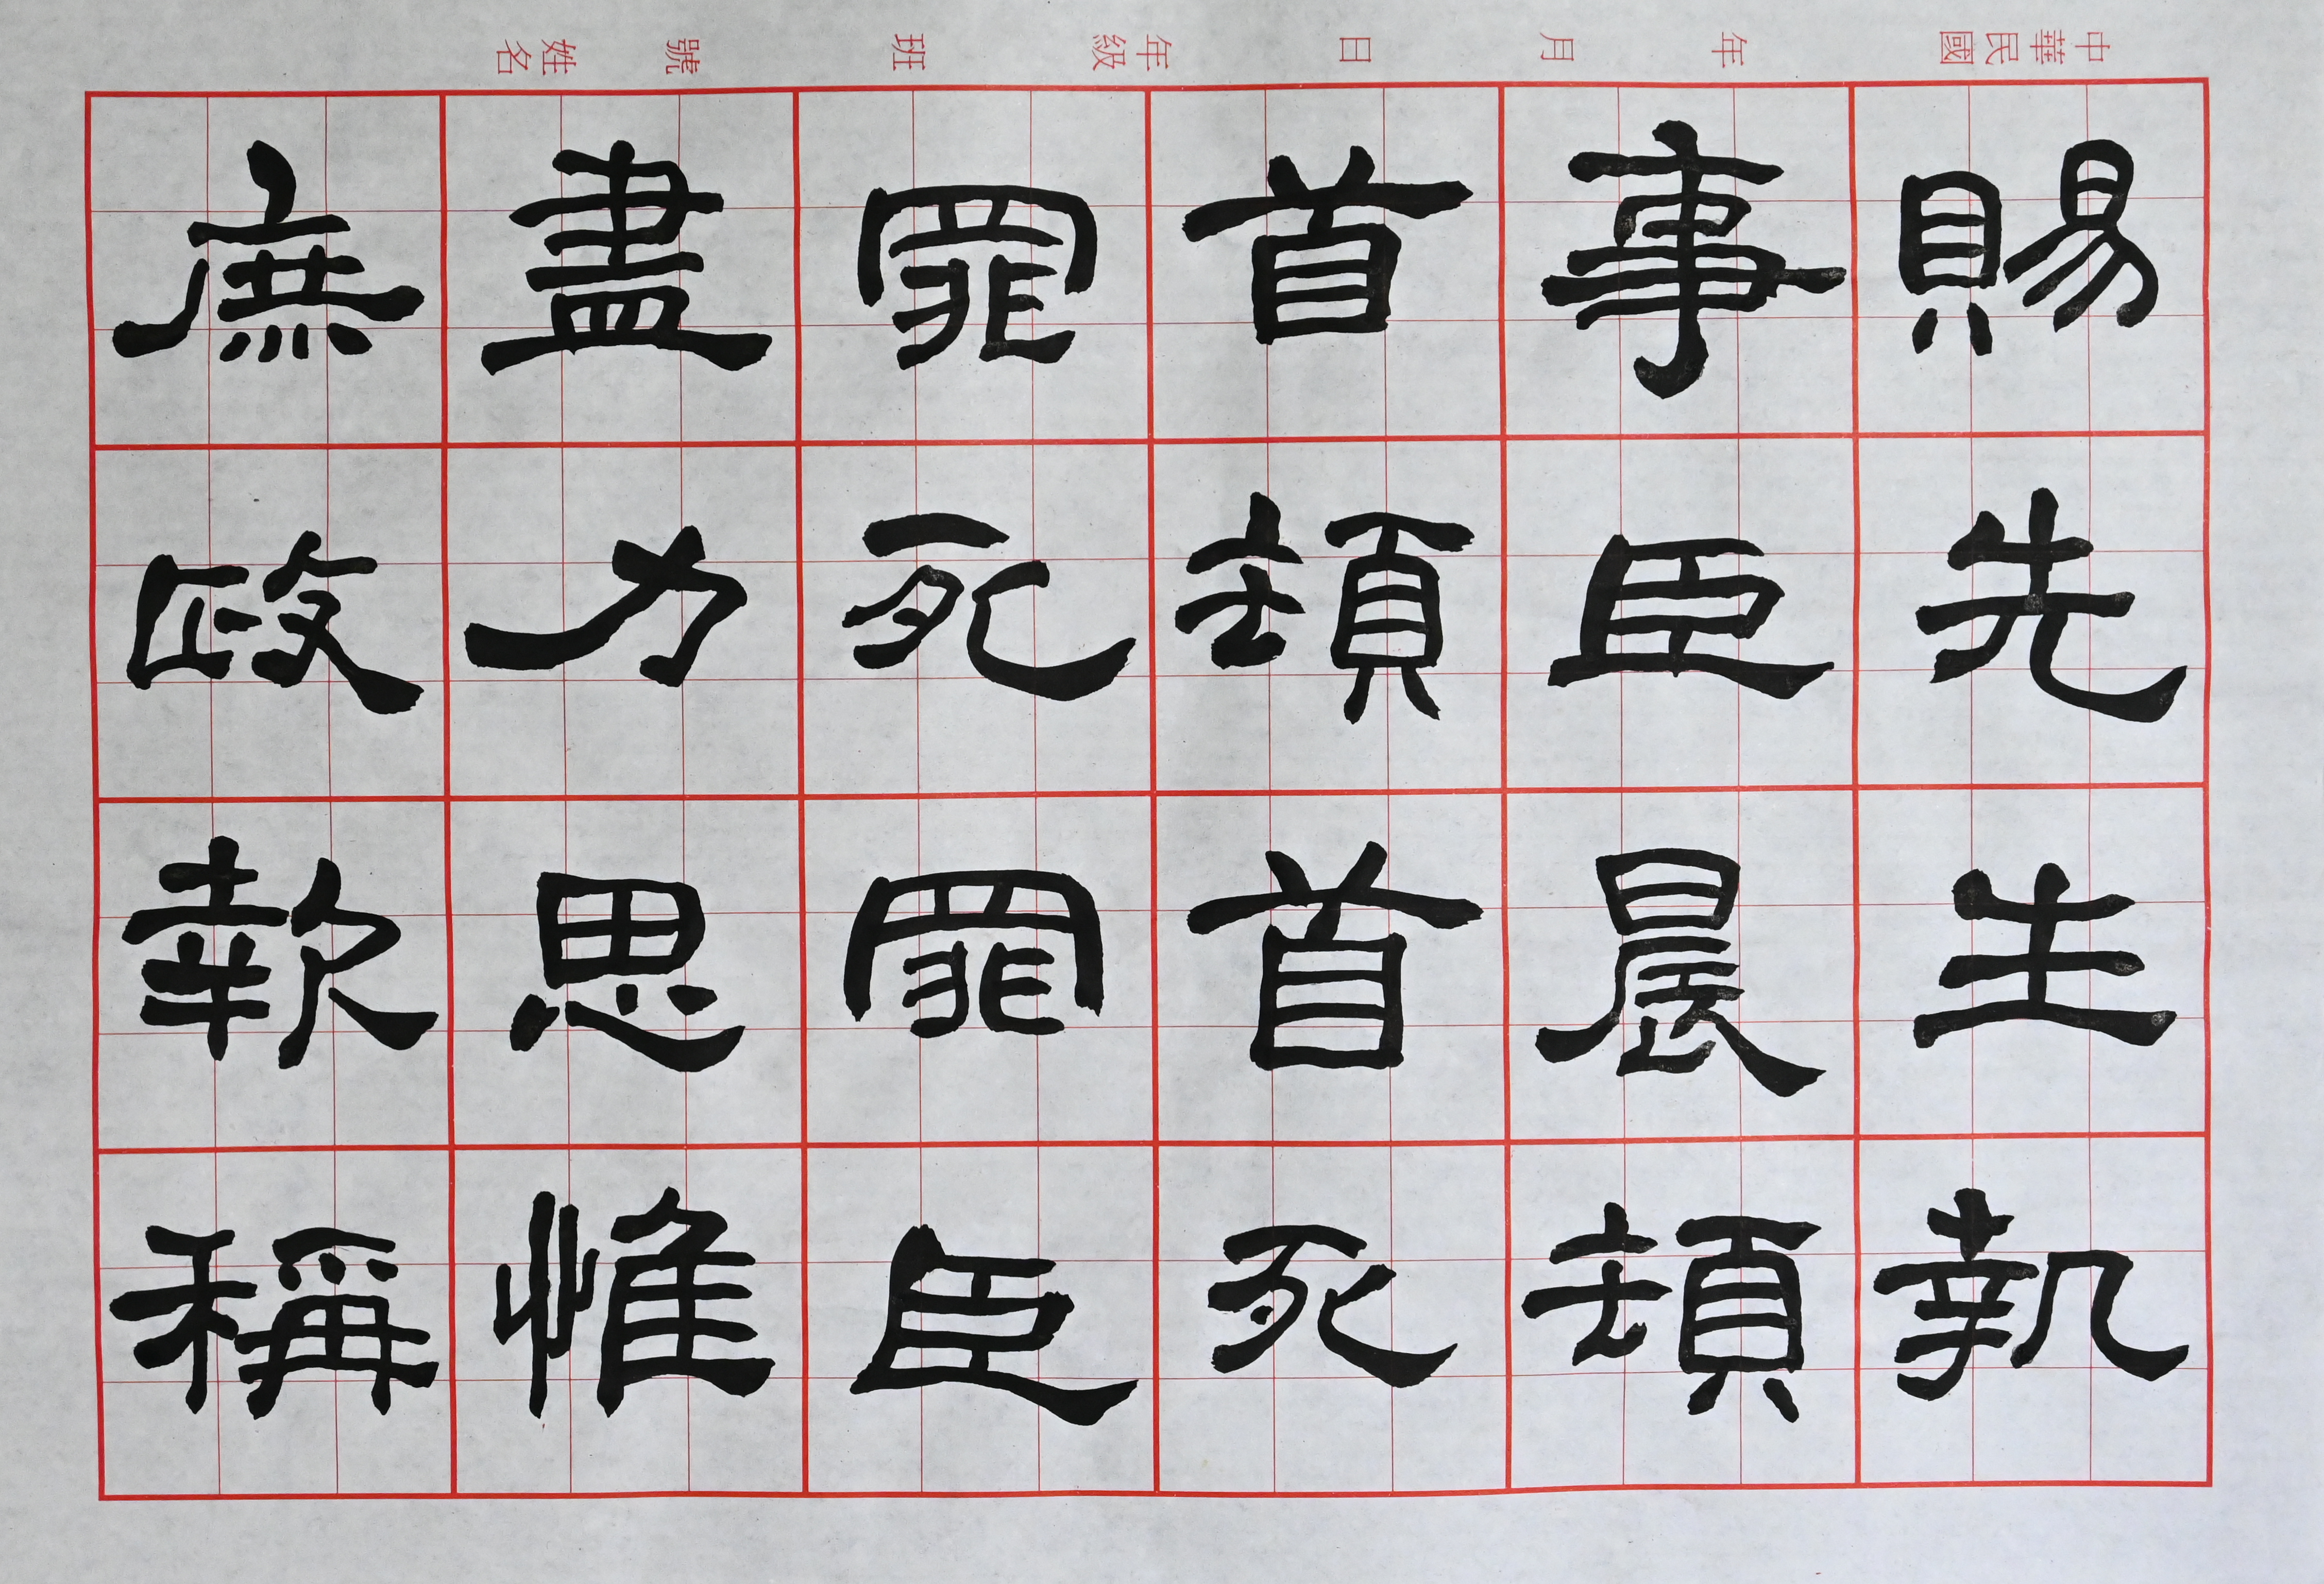 中華民國　年　月　日　年級　班　號　姓名
賜先生執
事臣晨頓
首頓首死
罪死罪臣
盡力思惟
庶政報稱